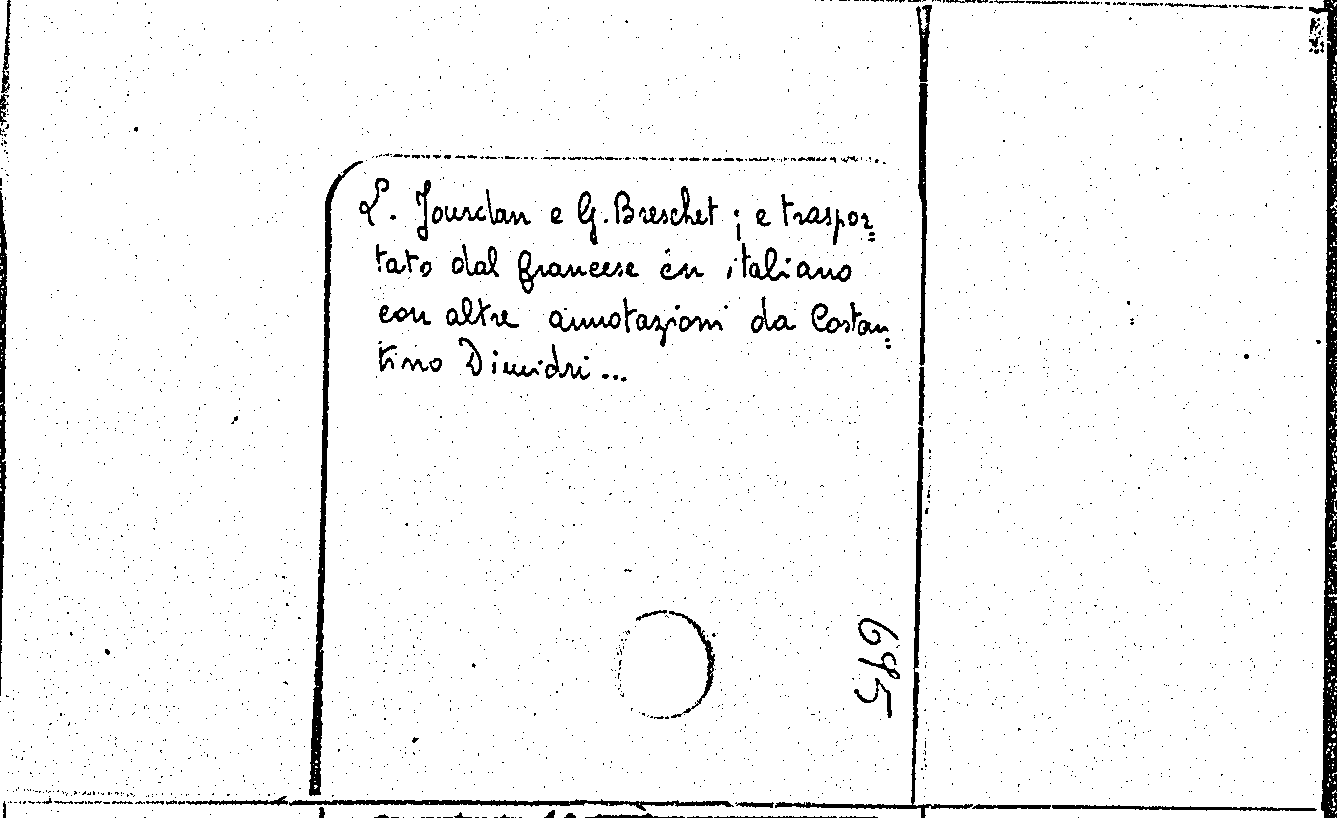 L. Jourdan e G. Breschet ; e traspor=
tato dal francese in italiano
con altre annotazioni da Costan=
tino Dimidri...
695